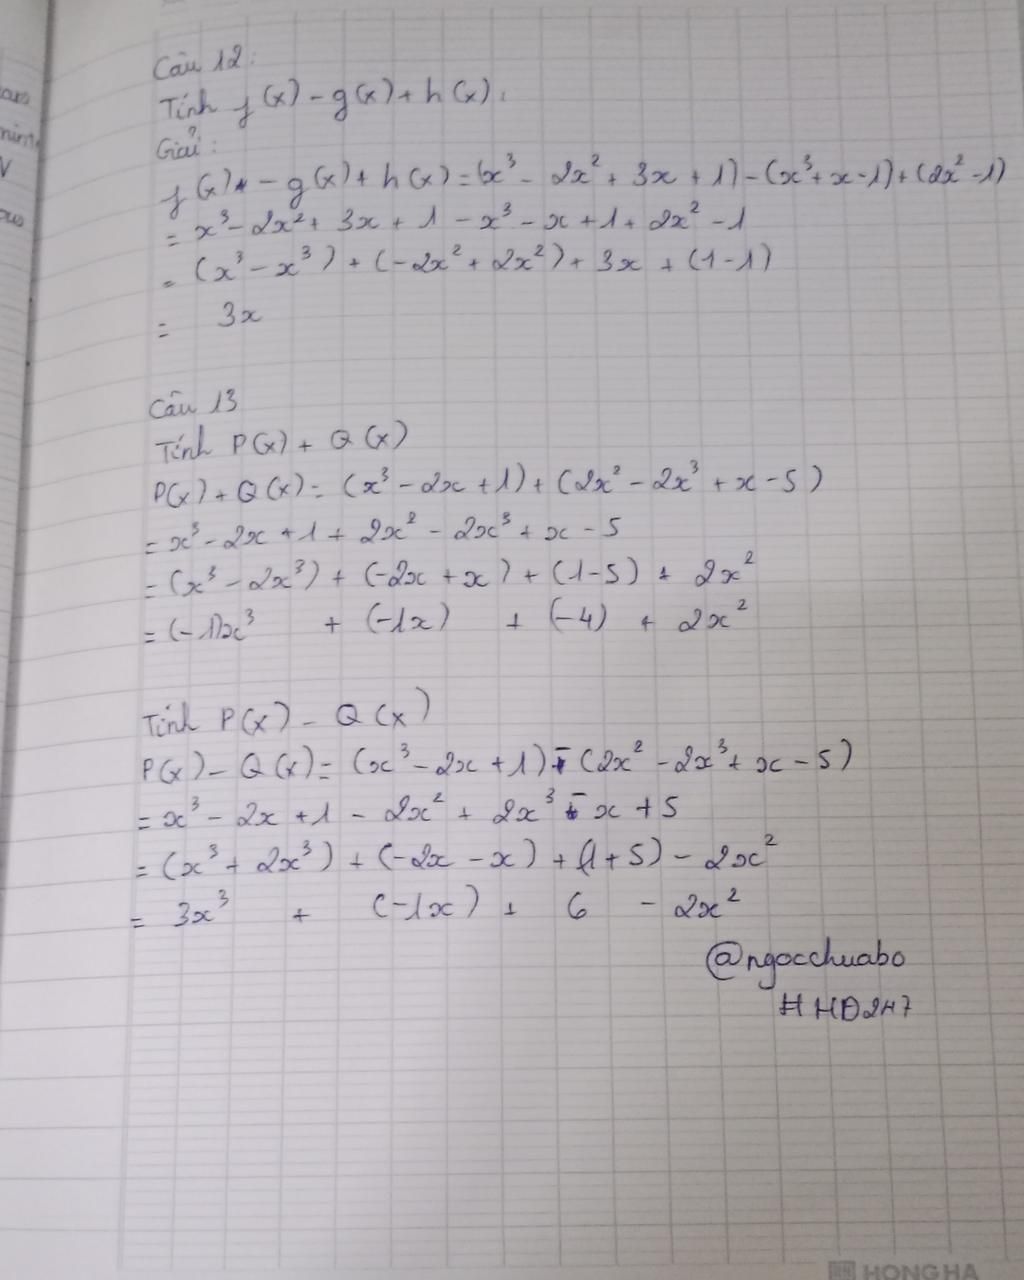 Câu 12:
Tính f(x) - g(x) + h(x).
Giải:
f(x) - g(x) + h(x) = (x³ - 2x² + 3x + 1) - (x³ + x - 1) + (2x² - 1)
= x³ - 2x² + 3x + 1 - x³ - x + 1 + 2x² - 1
= (x³ - x³) + (-2x² + 2x²) + 3x + (1 - 1)
= 3x
Câu 13
Tính P(x) + Q(x)
P(x) + Q(x) = (x³ - 2x + 1) + (2x² - 2x³ + x - 5)
= x³ - 2x + 1 + 2x² - 2x³ + x - 5
= (x³ - 2x³) + (-2x + x) + (1 - 5) + 2x²
= (-1)x³ + (-1x) + (-4) + 2x²
Tính P(x) - Q(x)
P(x) - Q(x) = (x³ - 2x + 1) - (2x² - 2x³ + x - 5)
= x³ - 2x + 1 - 2x² + 2x³ - x + 5
= (x³ + 2x³) + (-2x - x) + (1 + 5) - 2x²
= 3x³ + (-1x) + 6 - 2x²
@ngocchuabo
#HĐ247
HONG HA